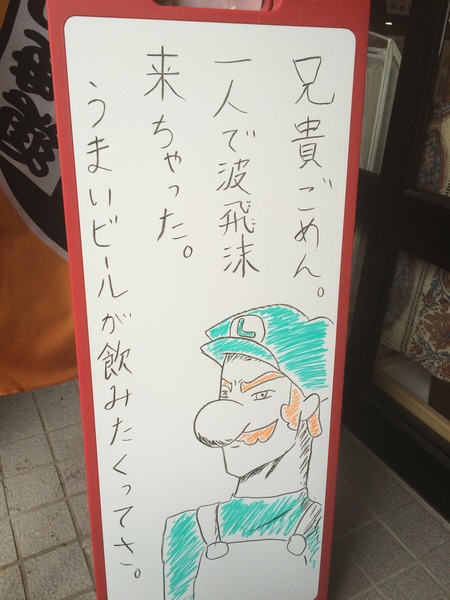 兄貴ごめん。
一人で波飛沫
来ちゃった。
うまいビールが飲みたくってさ。
L